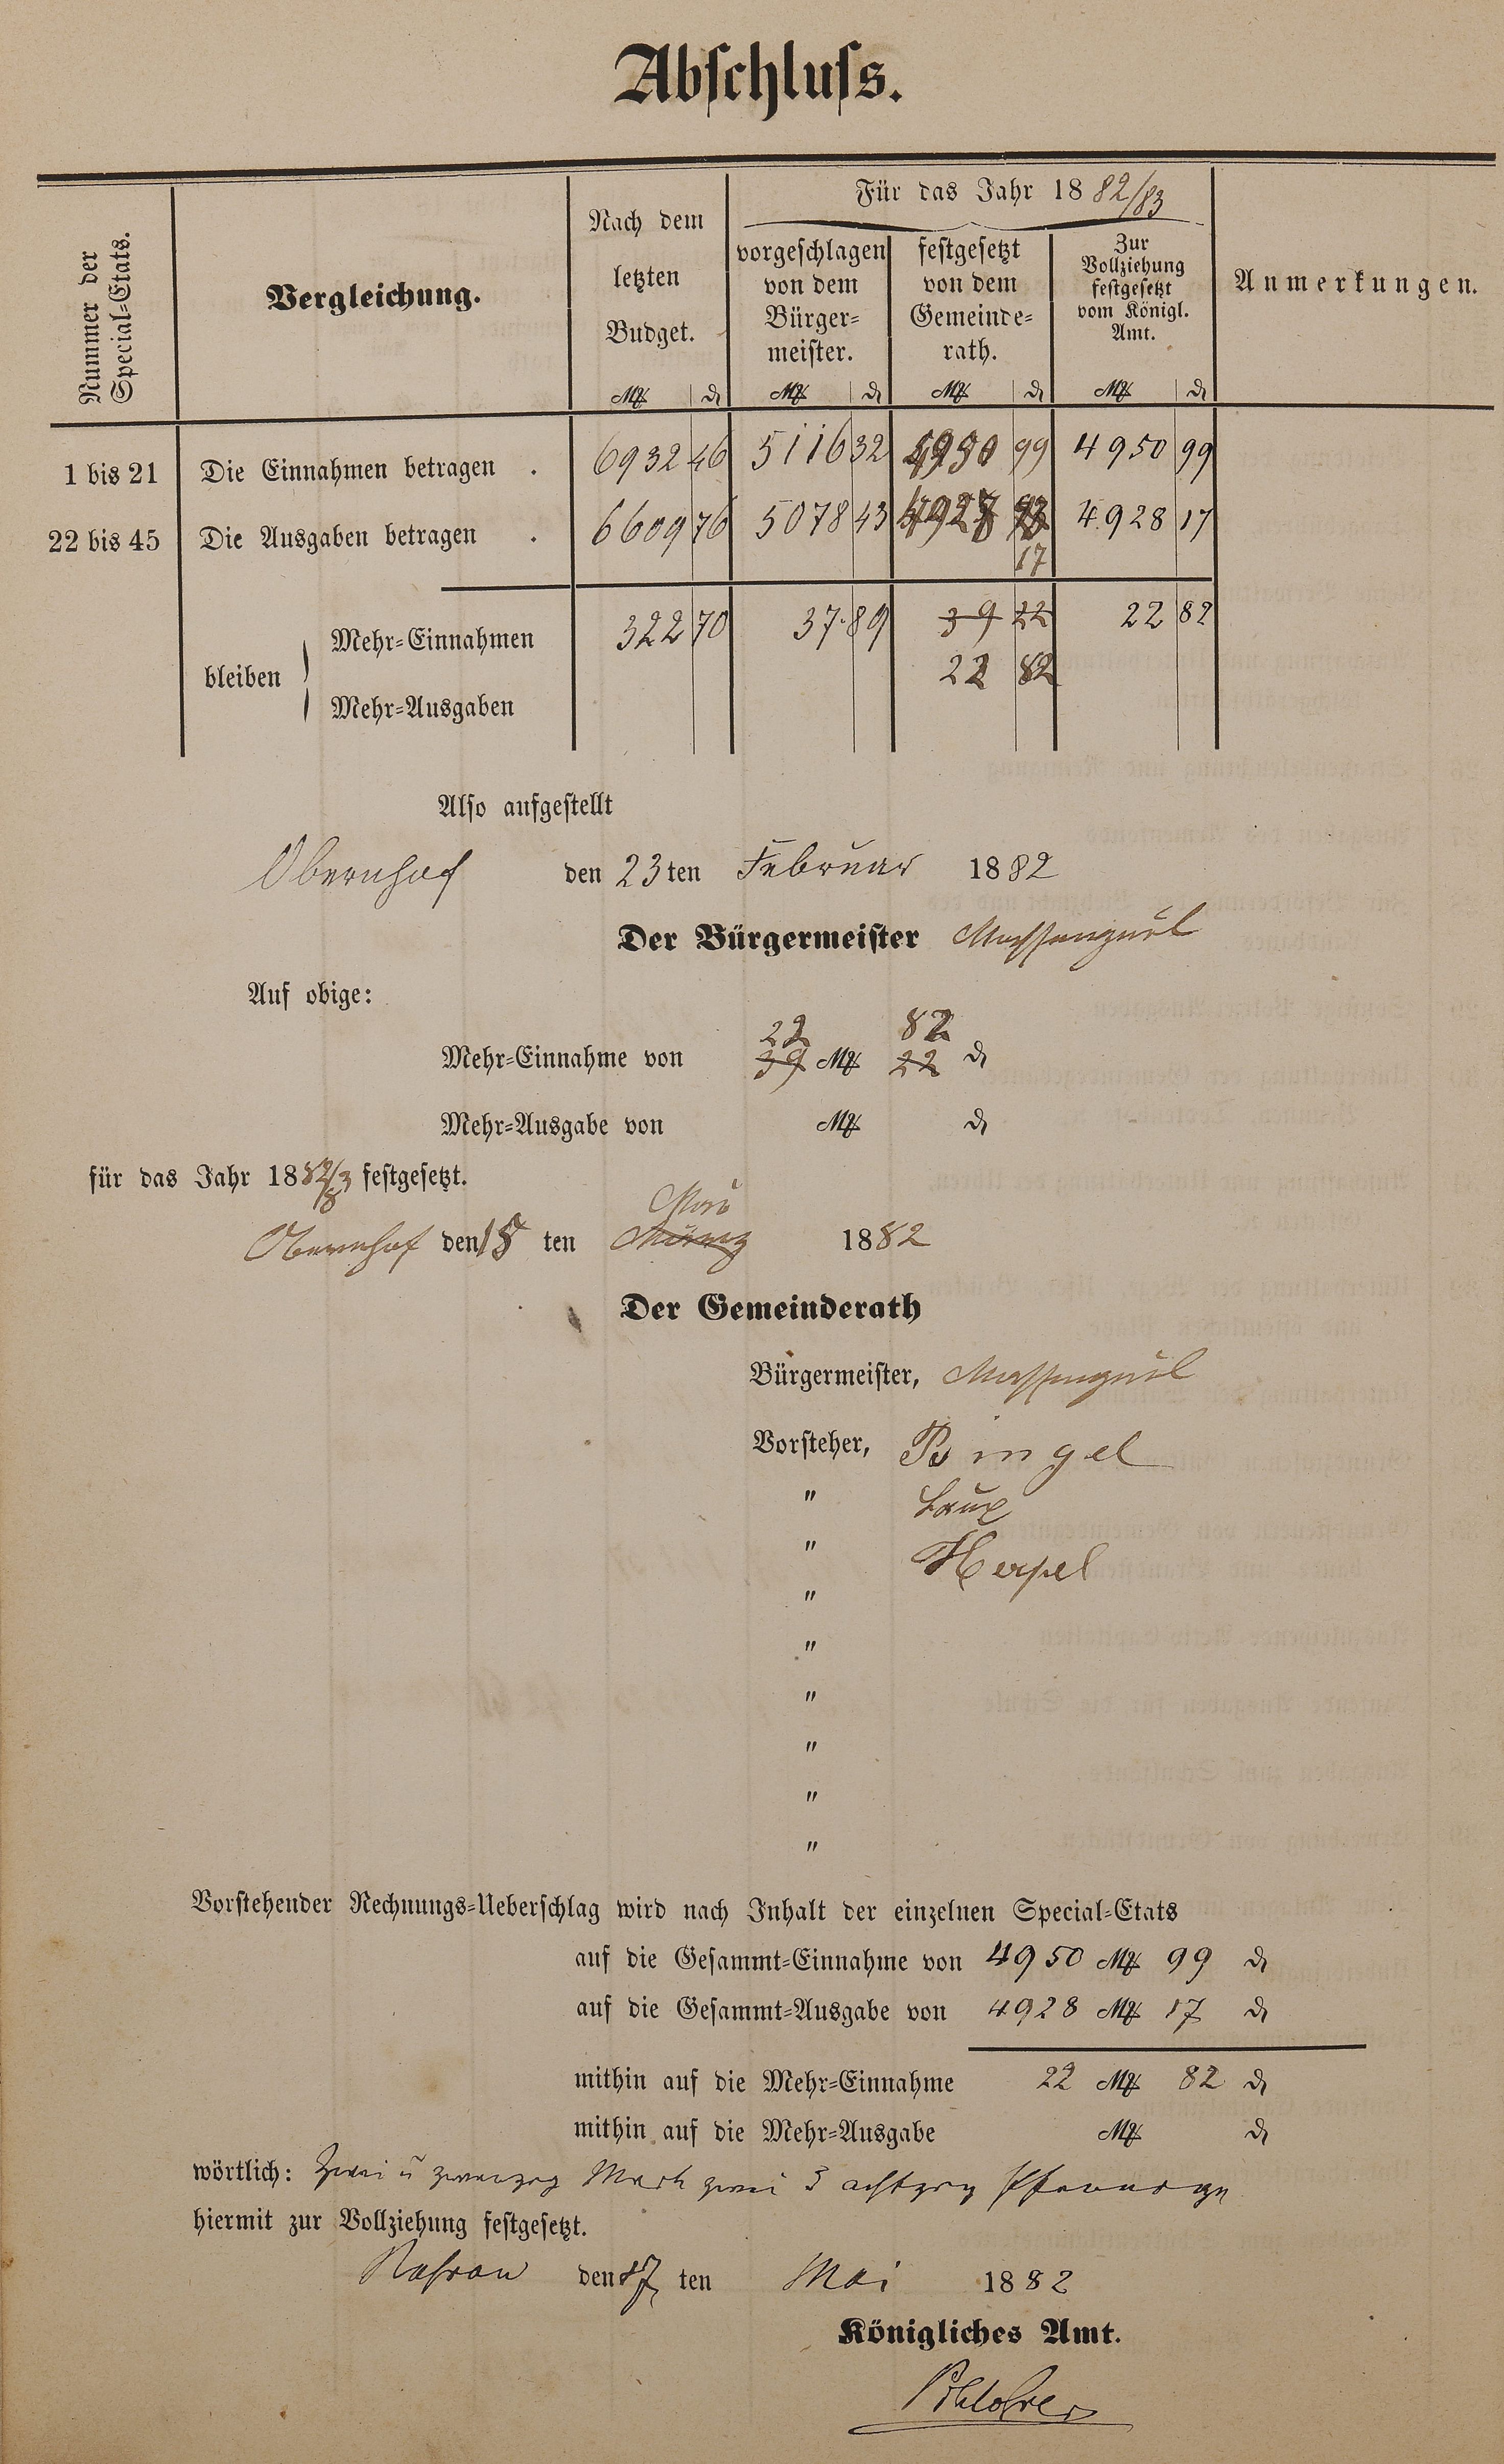 Abschluſs.
Nummer der Special-Etats.
Vergleichung.
Nach dem letzten Budget.
Für das Jahr 1882/83
vorgeschlagen von dem Bürger-meister.
festgesetzt von dem Gemeinde-rath.
Zur Vollziehung festgesetzt vom Königl. Amt.
Anmerkungen.
M ₰ M ₰ M ₰ M ₰
1 bis 21 Die Einnahmen betragen . 6932 46 5116 32 4950 99 4950 99
22 bis 45 Die Ausgaben betragen . 6609 76 5078 43 4928 17 4928 17
bleiben
Mehr-Einnahmen 322 70 37 89 39 22 22 82
22 82
Mehr-Ausgaben
Also aufgestellt
Obernhof den 23ten Februar 1882
Der Bürgermeister
Auf obige:
22 82
Mehr-Einnahme von 39 M 22 ₰
Mehr-Ausgabe von M ₰
für das Jahr 1882/3 festgesetzt.
Obernhof den 18 ten März 1882
Der Gemeinderath
Bürgermeister,
Vorsteher, Bingel
" Laux
" Herpel
"
"
"
"
"
"
Vorstehender Rechnungs-Ueberschlag wird nach Inhalt der einzelnen Special-Etats
auf die Gesammt-Einnahme von 4950 M 99 ₰
auf die Gesammt-Ausgabe von 4928 M 17 ₰
mithin auf die Mehr-Einnahme 22 M 82 ₰
mithin auf die Mehr-Ausgabe M ₰
wörtlich: Zwei u zwanzig Mark zwei & achtzig Pfennige
hiermit zur Vollziehung festgesetzt.
Nassau den 17 ten Mai 1882
Königliches Amt.